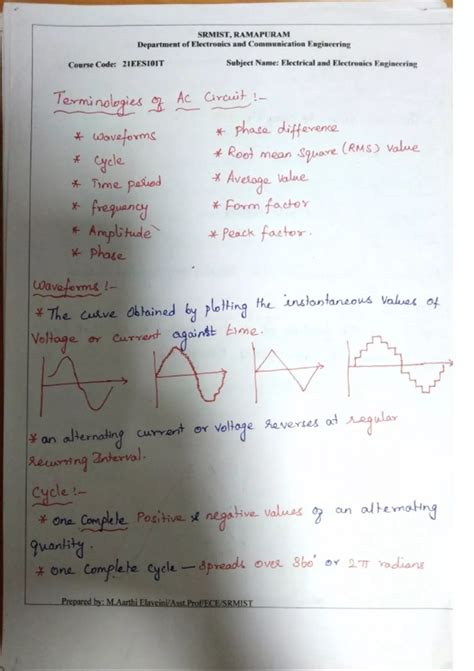 SRMIST, RAMAPURAM
Department of Electronics and Communication Engineering
Course Code: 21EES101T Subject Name: Electrical and Electronics Engineering
Terminologies of AC Circuit :-
* Waveforms
* Cycle
* Time period
* frequency
* Amplitude
* Phase
* Phase difference
* Root mean Square (RMS) Value
* Average Value
* Form factor
* Peack factor.
Waveforms :-
* The curve Obtained by plotting the instantaneous Values of
Voltage or current against time.
* an alternating current or voltage reverses at regular
recurring Interval.
Cycle :-
* one Complete Positive & negative values of an alternating
quantity.
* one Complete cycle — Spreads over 360° or 2π radians
Prepared by: M.Aarthi Elaveini/Asst.Prof/ECE/SRMIST